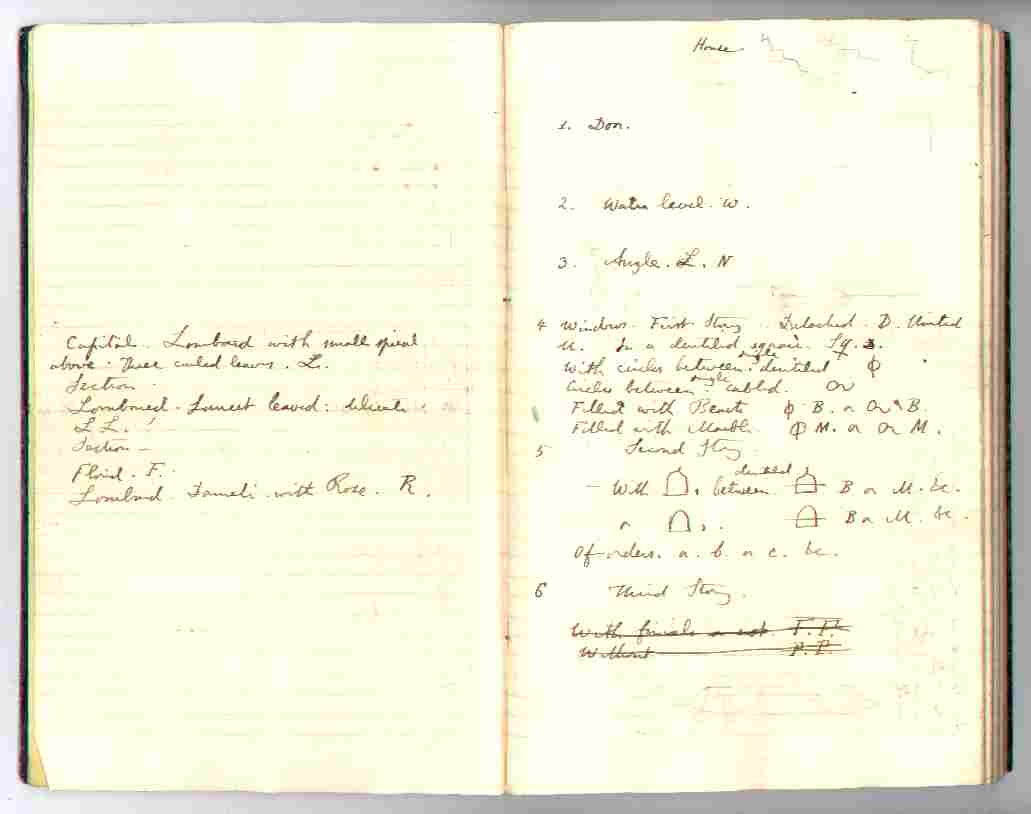 Capital. Lombard with small spiral
above. Three curled leaves. L.
Section
Lombard. Lancet leaved:
L L.
Section —
Florid. F.
Lombard. with Rose. R.
House
1. Door.
2. Water level. W.
3. Angle. L. N
4 Windows. First Story. Detached. D. United
U. In a dentiled square. Sq.
With circles between: angle dentiled ⌽
Circles between angle cabled. Or
Filled with Beasts ⌽ B. or Or B.
Filled with Marble. ⌽ M. or Or M.
5 Second Story
— With between dentiled B or M. &c.
or B or M. &c.
Of orders. a. b. or c. &c.
6 Third Story.
With finials or not. F. F.
Without P. P.